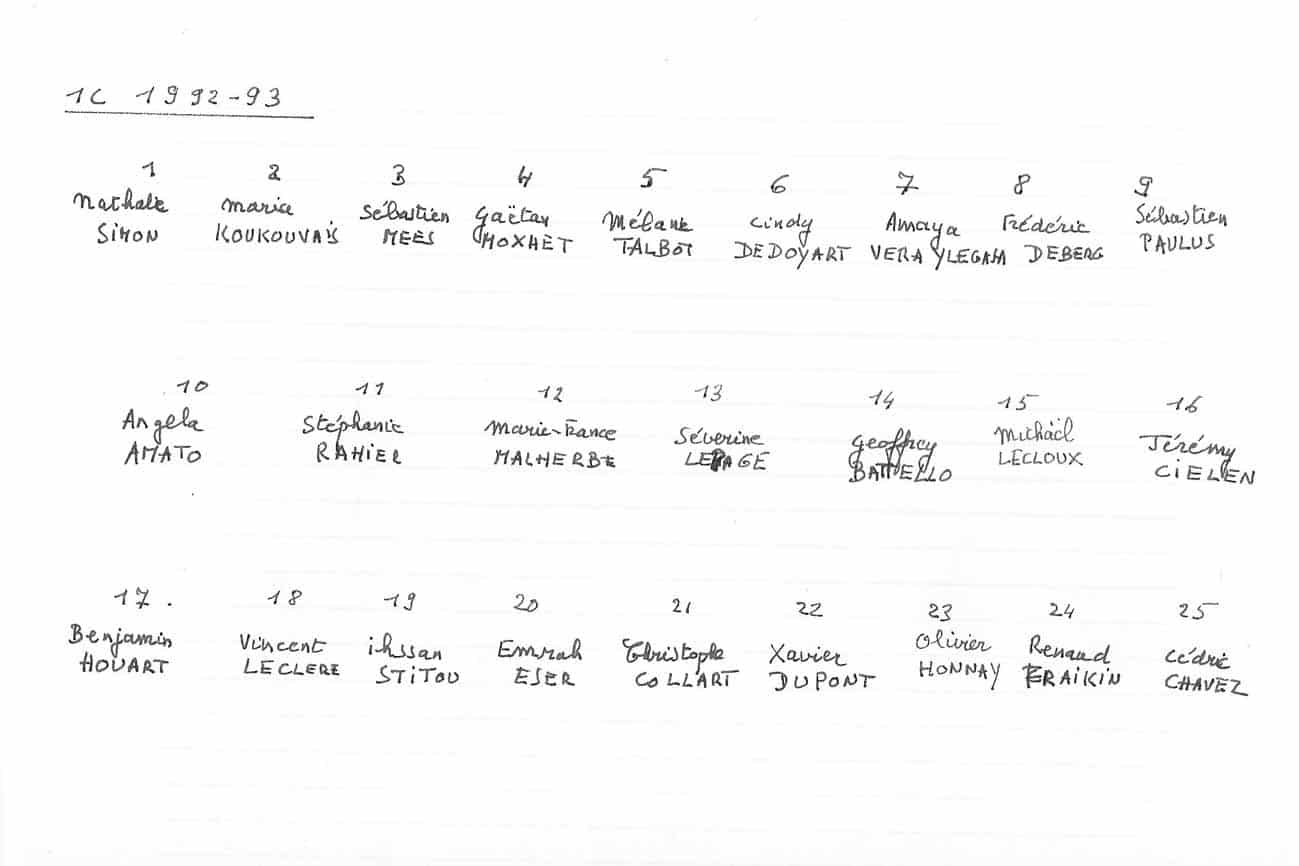 1C 1992-93
1 2 3 4 5 6 7 8 9
Nathalie Maria Sébastien Gaëtan Mélanie Cindy Amaya Frédéric Sébastien
SIMON KOUKOUVAIS MEES MOXHET TALBOT DEDOYART VERA YLEGAIA DEBERG PAULUS
10 11 12 13 14 15 16
Angela Stéphanie Marie-France Séverine Geoffrey Michaël Jérémy
AMATO RAHIER MALHERBE LEPAGE LECLOUX CIELEN
17. 18 19 20 21 22 23 24 25
Benjamin Vincent ihssan Emrah Christophe Xavier Olivier Renaud Cédric
HOUART LECLERE STITOU ESER COLLART DUPONT HONNAY FRAIKIN CHAVEZ